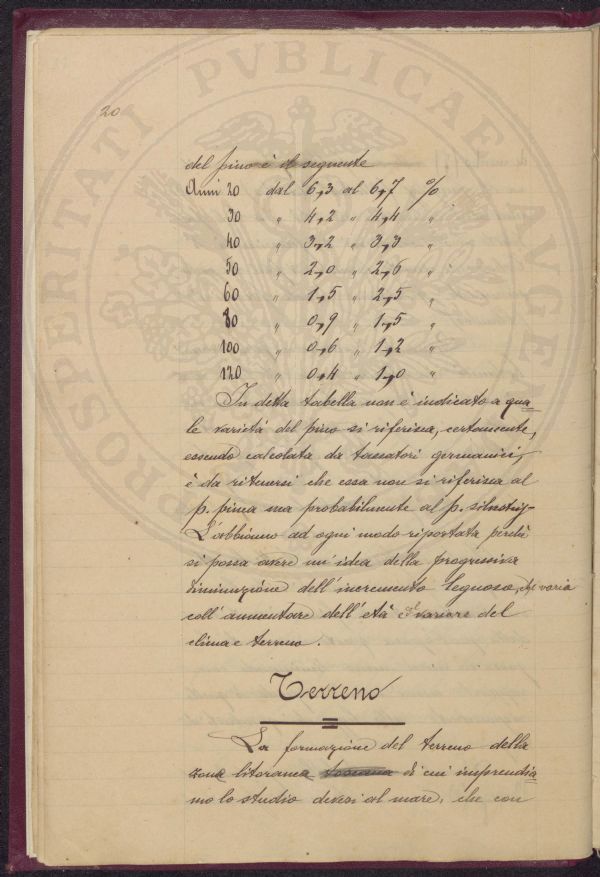 PROSPERITATI PVBLICAE AVGENDAE
20
del pino è il seguente
Anni 20 dal 6,3 al 6,7 %
30 " 4,2 " 4,4 "
40 " 3,2 " 3,3 "
50 " 2,0 " 2,6 "
60 " 1,5 " 2,5 "
80 " 0,9 " 1,5 "
100 " 0,6 " 1,2 "
120 " 0,4 " 1,0 "
In detta tabella non è indicato a qua=
le varietà del pino si riferisca, certamente,
essendo calcolata da tassatori germanici,
è da ritenersi che essa non si riferisca al
p. pinea ma probabilmente al p. silvestris-
L'abbiamo ad ogni modo riportata perchè
si possa avere un'idea della progressiva
diminuzione dell'incremento legnoso, che varia
coll'aumentare dell'età variare del
clima e terreno.
Terreno
La formazione del terreno della
zona litoranea toscana di cui imprendia=
mo lo studio devesi al mare, che con